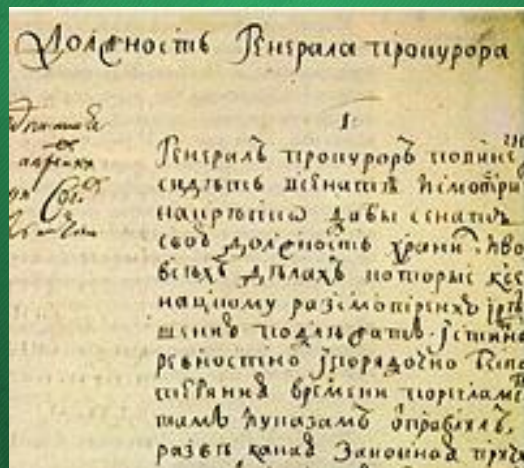 Должность Генерала прокурора
1:
Генералъ прокуроръ повине
сидѣть всенатѣ ісмотрѣ
накрѣпко дабы сенатъ
своѣ должность храни іво
всѣхъ дѣлахъ которые ксе
нацкому разсмотренію ірѣ
шенію подлежатъ. істинно
ревностно іпорядочно безпо
терянія времени порегламе
тамъ іуказамъ отправлялъ,
развѣ какая Законная прич